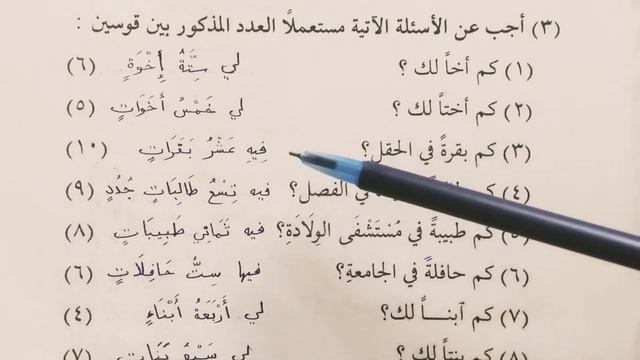 (٣) أجب عن الأسئلة الآتية مستعملاً العدد المذكور بين قوسين :
(١) كم أخاً لك ؟ لي سِتَّةُ إِخْوَةٍ (٦)
(٢) كم أختاً لك ؟ لي خَمْسُ أَخَوَاتٍ (٥)
(٣) كم بقرةً في الحقلِ؟ فِيهِ عَشْرُ بَقَرَاتٍ (١٠)
(٤) كم في الفصل؟ فيه تِسْعُ طَالِبَاتٍ جُدُدٍ (٩)
كم طبيبةً في مُسْتَشْفَى الوِلَادَةِ؟ فيه ثَمَانِي طَبِيبَاتٍ (٨)
(٦) كم حافلةً في الجامعةِ؟ فيها سِتُّ حَافِلَاتٍ (٦)
(٧) كم آبنـاً لك؟ لي أَرْبَعَةُ أَبْنَاءٍ (٤)
(٨) كم بنتاً لك؟ لي سَبْعُ بَنَاتٍ (٧)